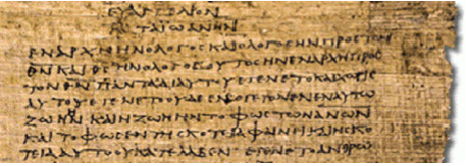 ΕΥΑΓΓΕΛΙΟΝ
ΤΑ ΪΩΑΝΗΝ
ΕΝ ΑΡΧΗ ΗΝ Ο ΛΟΓΟϹ ΚΑΙ Ο ΛΟΓΟϹ ΗΝ ΠΡΟϹ ΤΟΝ
ΘΝ ΚΑΙ ΘϹ ΗΝ Ο ΛΟΓΟϹ ΟΥΤΟϹ ΗΝ ΕΝ ΑΡΧΗ ΠΡΟϹ
ΤΟΝ ΘΝ ΠΑΝΤΑ ΔΙ ΑΥΤΟΥ ΕΓΕΝΕΤΟ ΚΑΙ ΧΩΡΙϹ
ΑΥΤΟΥ ΕΓΕΝΕΤΟ ΟΥΔΕΝ Ο ΓΕΓΟΝΕΝ ΕΝ ΑΥΤΩ
ΖΩΗ ΚΑΙ Η ΖΩΗ ΗΝ ΤΟ ΦΩϹ ΤΩΝ ΑΝΩΝ
ΚΑΙ ΤΟ ΦΩϹ ΕΝ ΤΗ ϹΚΟΤΕΙΑ ΦΑΙΝΙ ΚΑΙ Η ϹΚΟ
ΤΕΙΑ ΑΥΤΟ ΟΥ ΚΑΤΕΛΑΒΕΝ ΕΓΕΝΕΤΟ ΑΝΘΡΩ